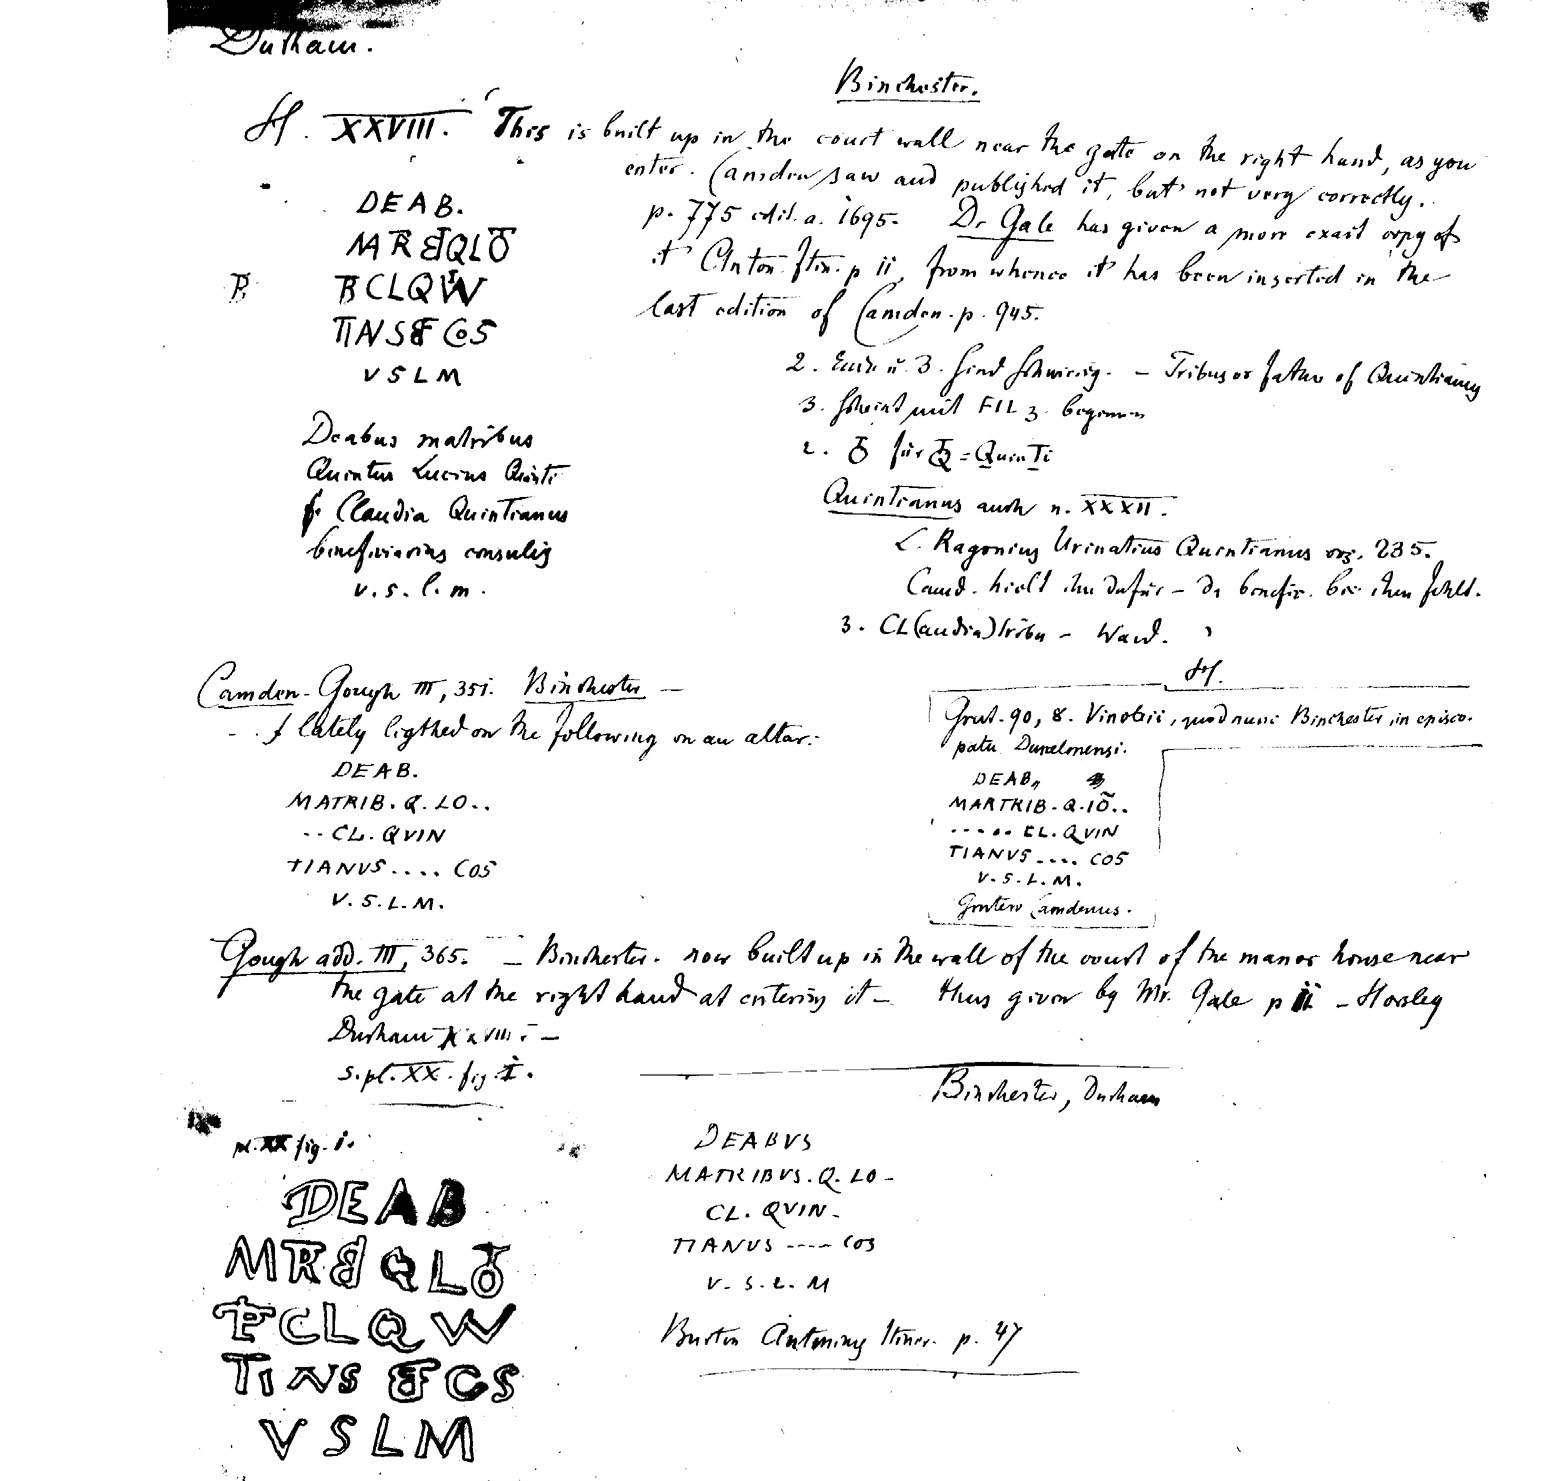 Durham.
Binchester.
H. XXVIII. This is built up in the court wall near the gate on the right hand, as you
enter. Camden saw and published it, but not very correctly.
p. 775 edit. a. 1695. Dr Gale has given a more exact copy of
it Anton. Itin. p ii, from whence it has been inserted in the
last edition of Camden. p. 945.
DEAB.
MRBQLO
CLQW
TINS COS
VSLM
Deabus matribus
Quintus Lucius Quinti
f. Claudia Quintianus
beneficiarius consulis
v. s. l. m.
2. Ende u. 3. sind schwierig. – Tribus or father of Quintianus
3. scheint mit FIL 3. begonnen
2. O für Q = Quinti
Quintianus auch n. XXXII.
L. Ragonius Urinatius Quintianus 235.
Camd. hielt ihn dafür – da benefic. bei ihm fehlt.
3. CL(audia) tribu – Ward.
H.
Camden-Gough III, 351. Binchester –
I lately ligthed on the following on an altar:
DEAB.
MATRIB. Q. LO..
..CL. QVIN
TIANVS.... COS
V. S. L. M.
Grut. 90, 8. Vinobii, quod nunc Binchester in episco-
patu Dunelmensi.
DEAB,,
MARTRIB. Q. IO..
..... CL. QVIN
TIANVS.... COS
V. S. L. M.
Grutero Camdenus.
Gough add. III, 365. – Binchester. now built up in the wall of the court of the manor house near
the gate at the right hand at entering it – thus given by Mr. Gale p ii – Horsley
Durham XXVIII. –
s. pl. XX. fig. I.
pl. XX fig. i.
DEAB
MRBQLO
CLQW
TINS CS
VSLM
Binchester, Durham
DEABVS
MATRIBVS. Q. LO-
CL. QVIN-
TIANVS ---- COS
V. S. L. M
Burton Antonins Itiner. p. 47